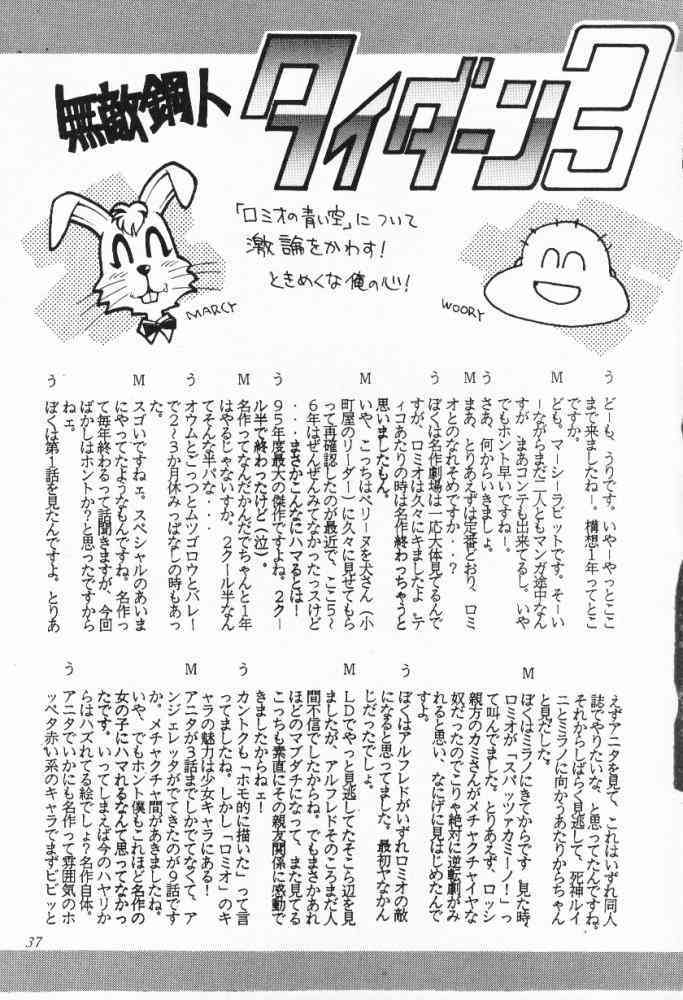 無敵鋼人
タイダーン3
「ロミオの青い空」について
激論をかわす!
ときめくな俺の心!
MARCY
WOORY
う どーも、うりです。いやーやっとここ
まで来ましたねー。構想1年ってとこ
ですか。
M ども。マーシーラビットです。そーい
ーながらまだ二人ともマンガ途中なん
すが…まあコンテも出来てるし。いや
でもホント早いですねー。
う さあ、何からいきましょ。
M まあ、とりあえずは定番どおり、ロミ
オとのなれそめですか・・?
う ぼくは名作劇場は一応大体見てるんで
すが、ロミオは久々にキましたよ。テ
ィコあたりの時は名作終わっちゃうと
思いましたもん。
M いや、こっちはペリーヌを犬さん(小
町屋のリーダー)に久々に見せてもら
って再確認したのが最近で、ここ5~
6年はぜんぜんみてなかったっスけど
・・・まさかこんなにハマるとは!
う 95年度最大の傑作ですよね。2クー
ル半で終わったけど(泣)。
M 名作ってなんだかんだでちゃんと1年
はやるじゃないすか。2クール半なん
てそんな半パな・・・
う オウムとごっつとムツゴロウとバレー
で2~3か月休みっぱなしの時もあっ
た。
M スゴいですねェ。スペシャルのあいま
にやってたようなもんですね。名作っ
て毎年終わるって話聞きますが、今回
ばかしはホントか?と思ったですから
ねェ。
う ぼくは第1話を見たんですよ。とりあ
えずアニタを見て、これはいずれ同人
誌でやりたいな、と思ってたんですね。
それからしばらく見逃して、死神ルイ
ニとミラノに向かうあたりからちゃん
と見だした。
M ぼくはミラノにきてからです。見た時、
ロミオが「スパッツァカミーノ!」っ
て叫んでました。とりあえず、ロッシ
親方のカミさんがメチャクチャイヤな
奴だったのでこりゃ絶対に逆転劇がみ
れると思い、なにげに見はじめたんで
すよ。
う ぼくはアルフレドがいずれロミオの敵
になると思ってました。最初ヤなかん
じだったでしょ。
M LDでやっと見逃してたそこら辺を見
ましたが、アルフレドそのころまだ人
間不信でしたからね。でもまさかあれ
ほどのマブダチになって、また見てる
こっちも素直にその親友関係に感動で
きましたからねェ!
う カントクも「ホモ的に描いた」って言
ってましたね。しかし「ロミオ」のキ
ャラの魅力は少女キャラにある!
M アニタが3話までしかでてなくて、ア
ンジェレッタがでてきたのが9話です
か。メチャクチャ間があきましたね。
いや、でもホント僕もこれほど名作の
女の子にハマれるなんて思ってなかっ
たです。いってしまえば今のハヤリか
らはハズれてる絵でしょ?名作自体。
う アニタでいかにも名作って雰囲気のホ
ッペタ赤い系のキャラでまずビビッと
37